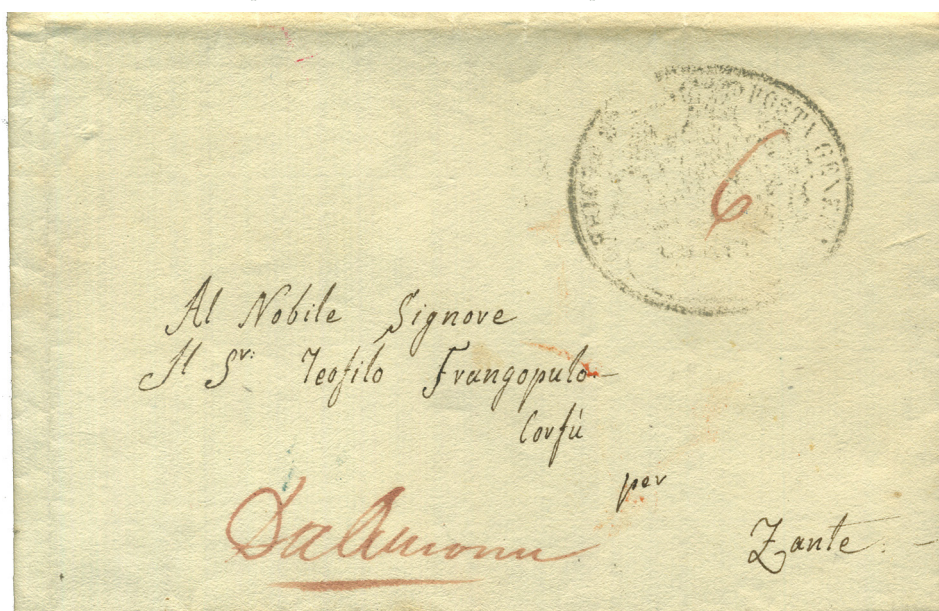 POSTA GENE
6
Al Nobile Signore
Il Sr: Teofilo Frangopulo
Corfù
per
Zante.